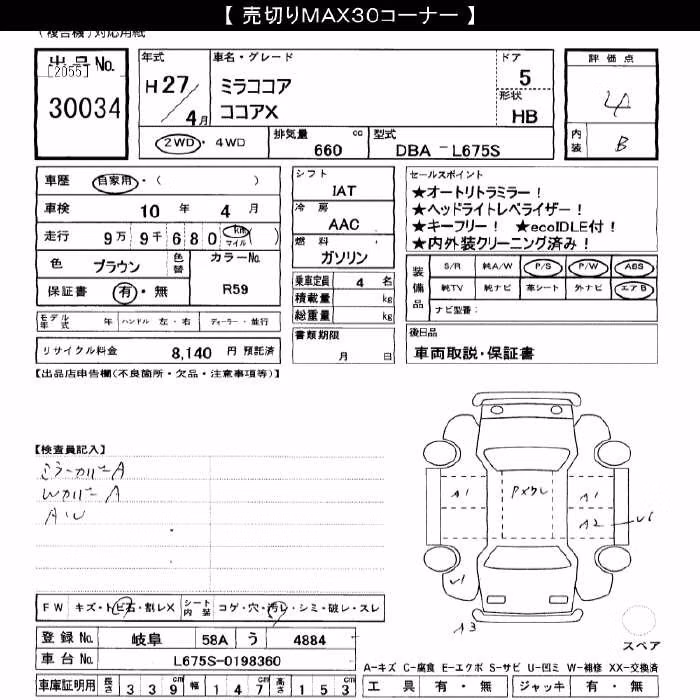 【 売切りMAX30コーナー 】
(複合機)対応用紙
出品No. [2055]
30034
年式
H27/4月
車名・グレード
ミラココア
ココアX
ドア
5
形状
HB
評価点
4
内装 B
2WD・4WD
排気量 cc
660
型式
DBA -L675S
車歴 自家用・( )
車検 10 年 4 月
走行 9万9千680 km マイル ( )
色 ブラウン 色替 カラーNo. R59
保証書 有・無
モデル年式 年 ハンドル 左・右 ディーラー・並行
リサイクル料金 8,140 円 預託済
シフト
IAT
冷房
AAC
燃料
ガソリン
乗車定員 4 名
積載量 kg
総重量 kg
書類期限
月 日
セールスポイント
★オートリトラミラー！
★ヘッドライトレベライザー！
★キーフリー！ ★ecoIDLE付！
★内外装クリーニング済み！
装備品
S/R 純A/W P/S P/W ABS
純TV 純ナビ 革シート 外ナビ エアB
ナビ型番：
後日品
車両取説・保証書
【出品店申告欄(不良箇所・欠品・注意事項等)】
【検査員記入】
ミラーカバーA
WカバーA
AW
A1
PXクレ
A1
A2
U1
A3
スペア
FW キズ・トビ石・割レX シート内装 コゲ・穴・汚レ・シミ・破レ・スレ
登録No. 岐阜 58A う 4884
車台No. L675S-0198360
車庫証明用 長さ 339cm 幅 147cm 高さ 153cm
A-キズ C-腐食 E-エクボ S-サビ U-凹ミ W-補修 XX-交換済
工具 有・無 ジャッキ 有・無